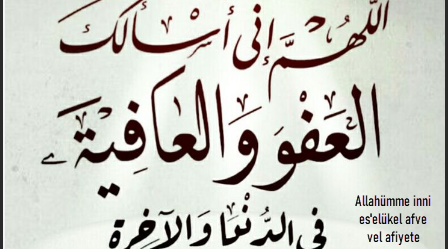 اللَّهُمَّ إِنِّي أَسْأَلُكَ
الْعَفْوَ وَالْعَافِيَةَ
فِي الدُّنْيَا وَالْآخِرَةِ
Allahümme inni
es'elükel afve
vel afiyete